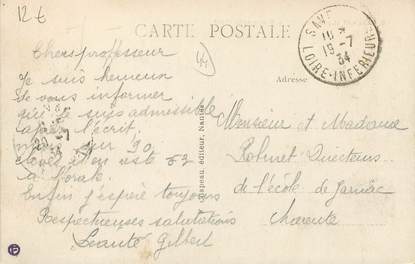 12 €
CARTE POSTALE
Adresse
SAVE
19-7
34
LOIRE-INFERIEURE
Chers professeur
Je suis heureux
de vous informer
que je suis admissible
après l'écrit,
sur 90
élèves il en reste 62
à l'oral.
Enfin j'espère toujours
Respectueuses salutations
Léauté Gilbert
Chapeau, éditeur, Nantes
Monsieur et Madame
Robinet Directeurs
de l'école de Jarnac
Charente